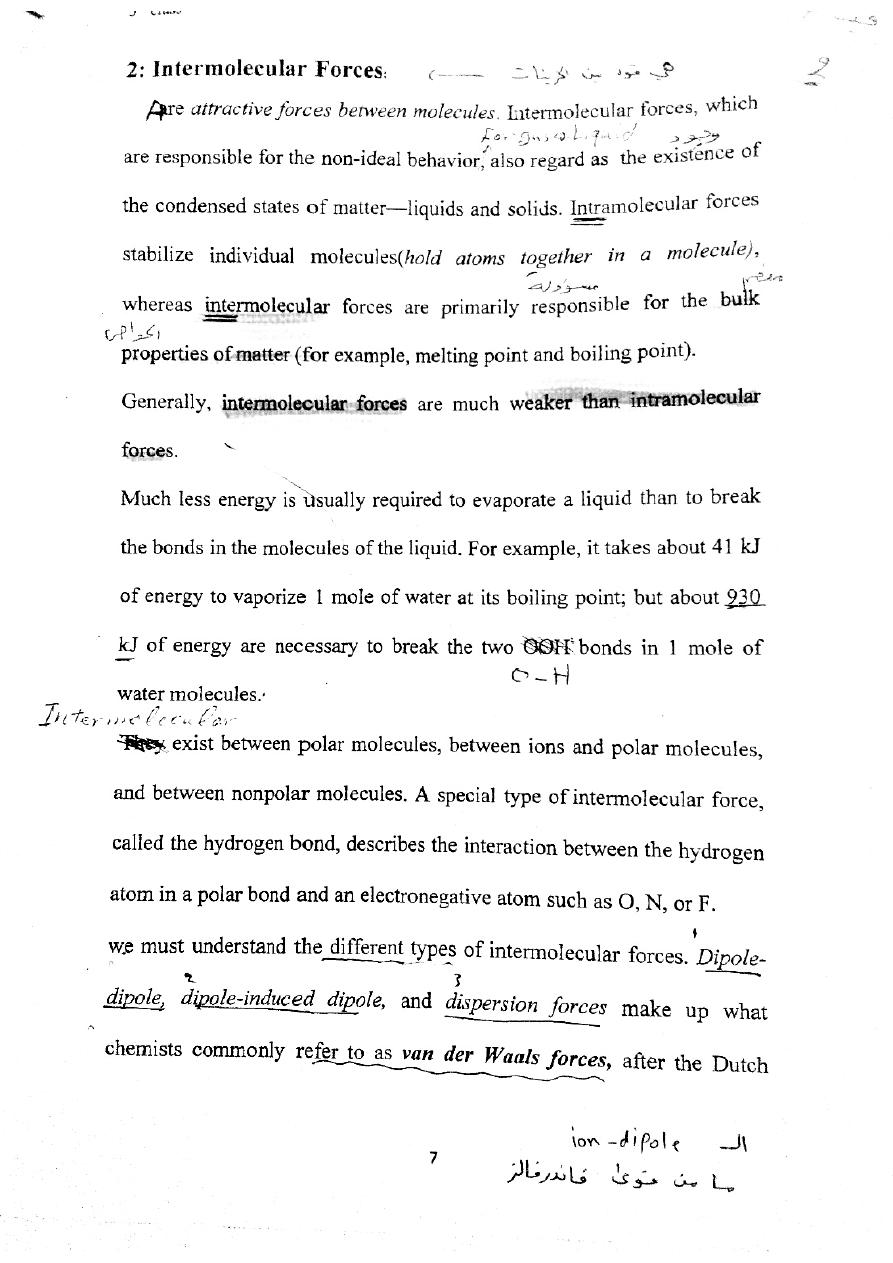 2: Intermolecular Forces: ← هي قوى بين الجزيئات
2
Are attractive forces between molecules. Intermolecular forces, which
For gas & Liquid وجود
are responsible for the non-ideal behavior, also regard as the existence of
the condensed states of matter—liquids and solids. Intramolecular forces
stabilize individual molecules(hold atoms together in a molecule),
مسؤولة
whereas intermolecular forces are primarily responsible for the bulk
properties of matter (for example, melting point and boiling point).
Generally, intermolecular forces are much weaker than intramolecular
forces.
Much less energy is usually required to evaporate a liquid than to break
the bonds in the molecules of the liquid. For example, it takes about 41 kJ
of energy to vaporize 1 mole of water at its boiling point; but about 930
kJ of energy are necessary to break the two OOH bonds in 1 mole of
O-H
water molecules.
Intermolecular
They exist between polar molecules, between ions and polar molecules,
and between nonpolar molecules. A special type of intermolecular force,
called the hydrogen bond, describes the interaction between the hydrogen
atom in a polar bond and an electronegative atom such as O, N, or F.
1
we must understand the different types of intermolecular forces. Dipole-
2 3
dipole, dipole-induced dipole, and dispersion forces make up what
chemists commonly refer to as van der Waals forces, after the Dutch
الـ ion-dipole
7
ما من قوى فاندرفالز